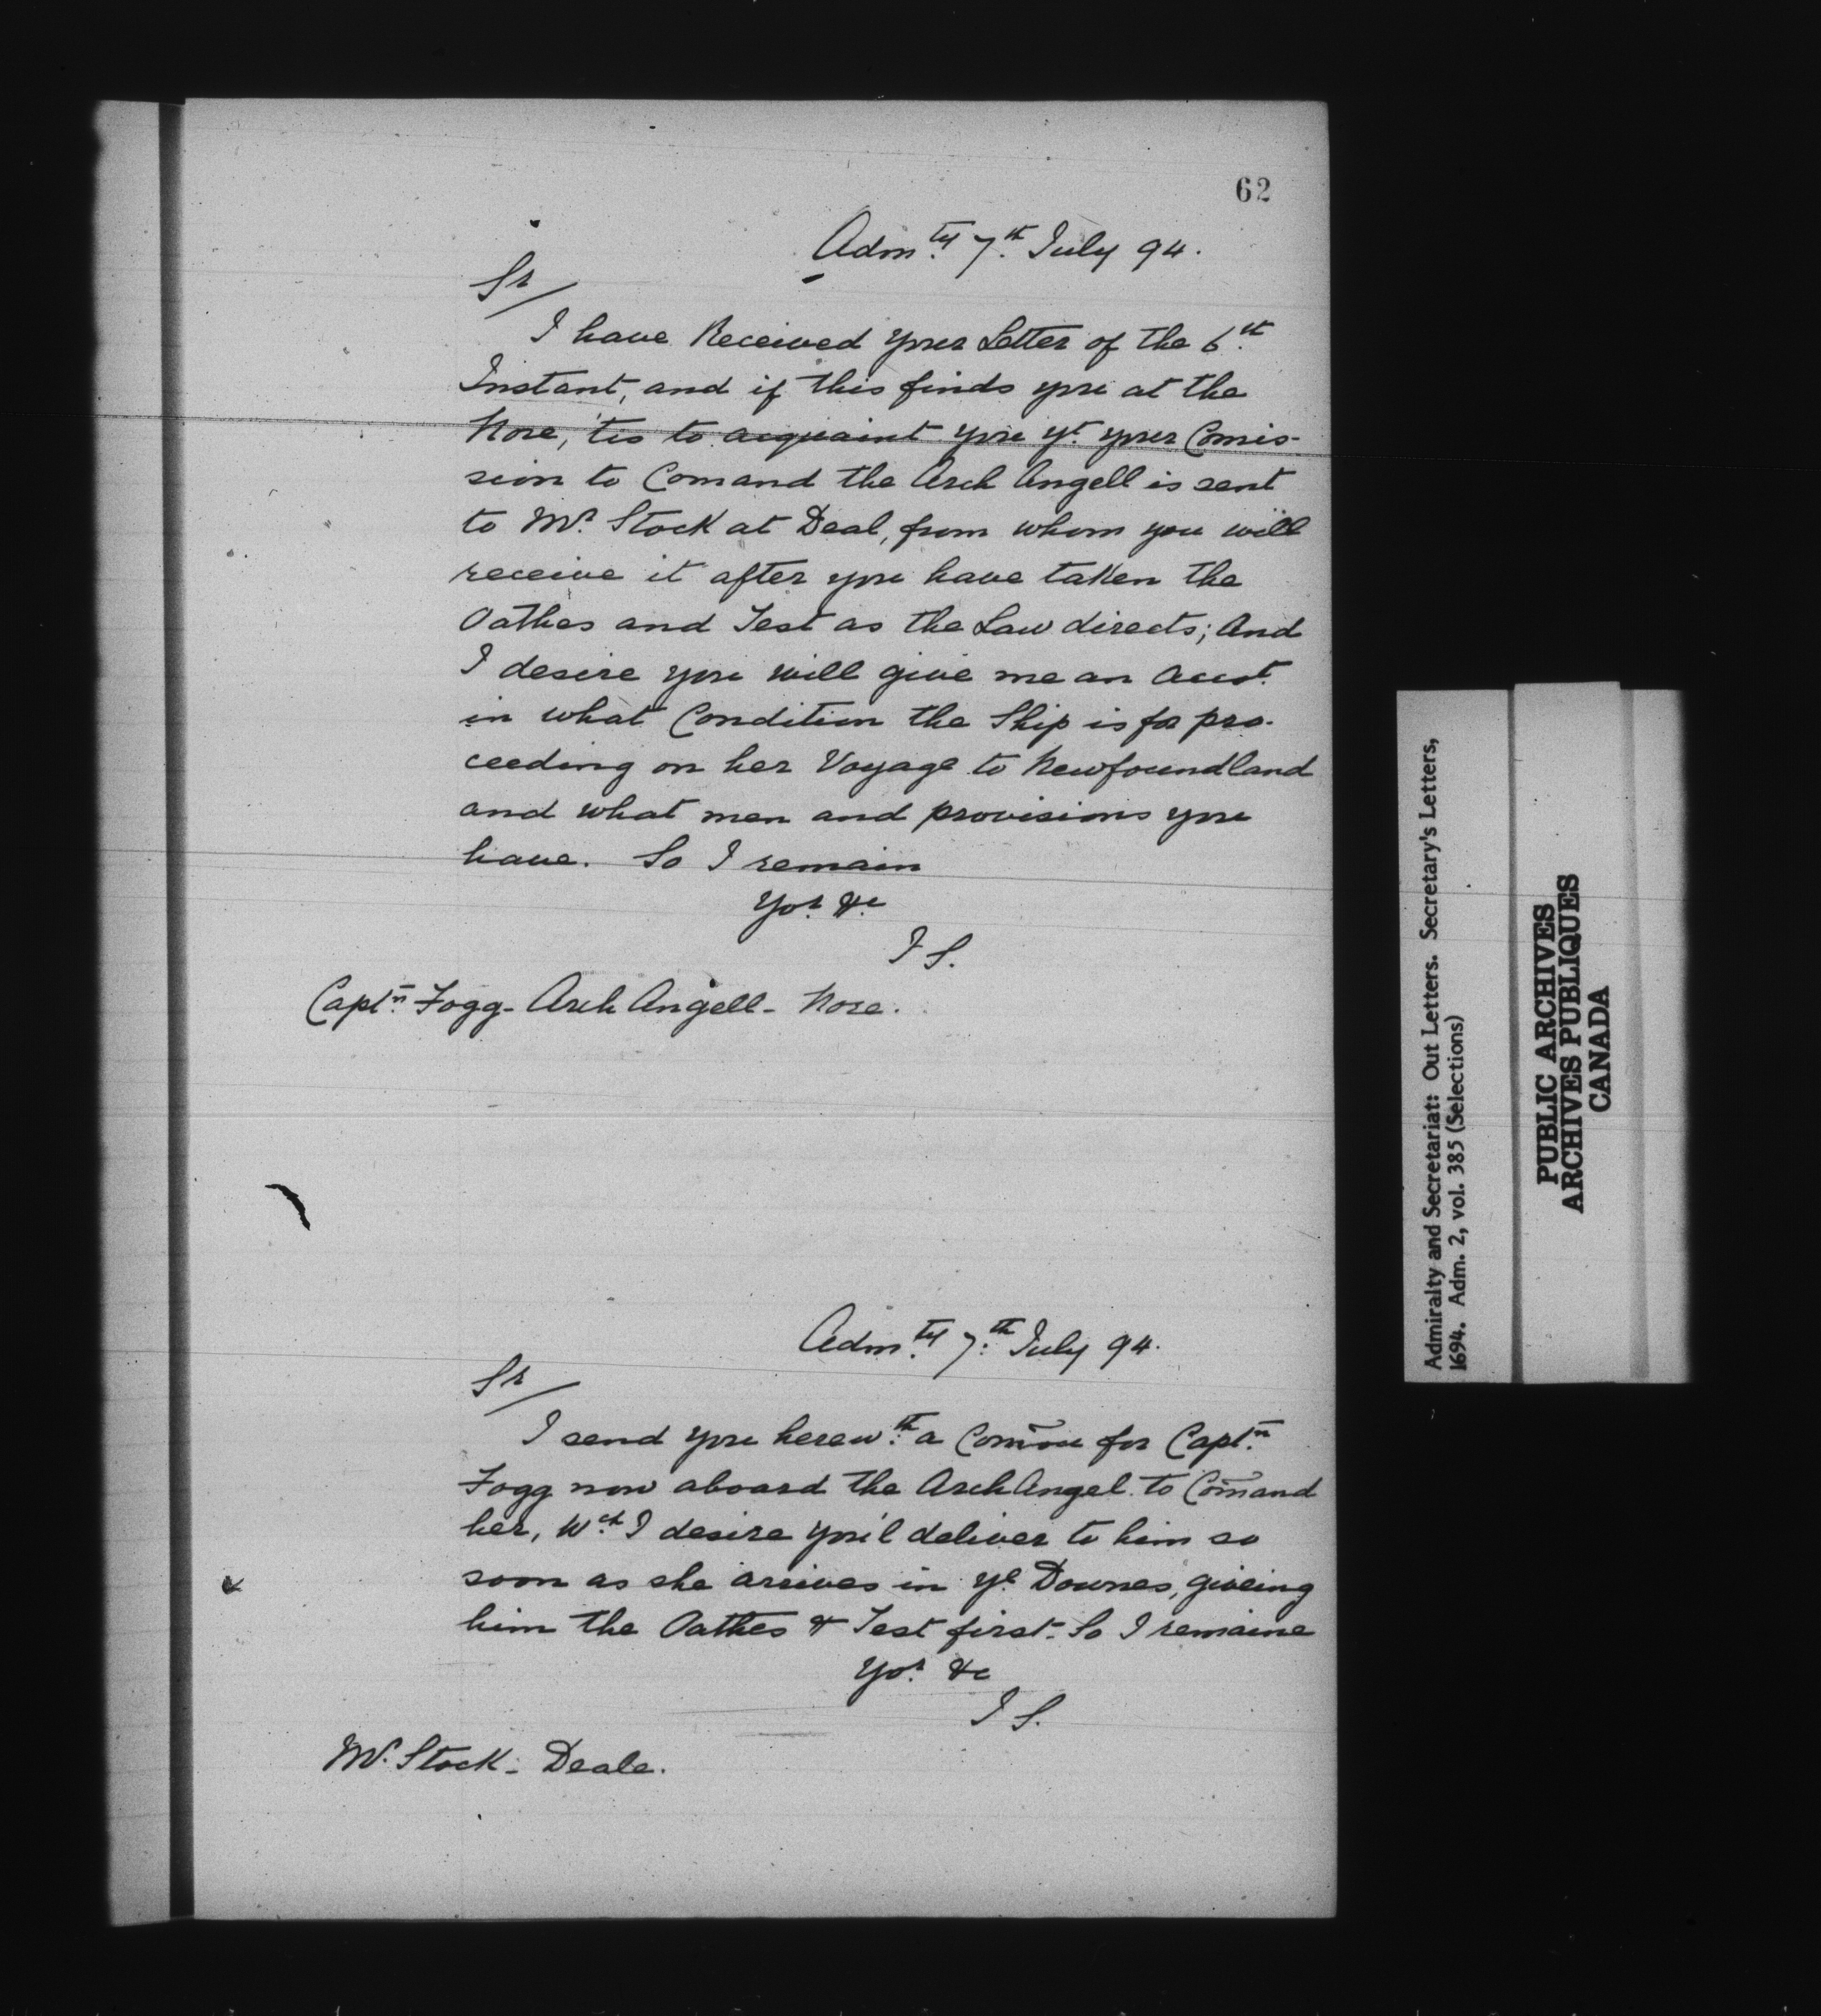 62
Adm.ty 7.th July 94.
Sr/
I have Received your Letter of the 6.th
Instant, and if this finds you at the
Nore, 'tis to acquaint you yt. your Comis-
sion to Comand the Arch Angell is sent
to Mr. Stock at Deal, from whom you will
receive it after you have taken the
Oathes and Test as the Law directs; And
I desire you will give me an Acct.
in what Condition the Ship is for pro-
ceeding on her Voyage to Newfoundland
and what men and provisions you
have. So I remain
Yor. &c
J S.
Captn. Fogg - Arch Angell - Nore.
Adm.ty 7.th July 94.
Sr/
I send you herew.th a Com̃on for Captn.
Fogg now aboard the Arch Angel to Com̃and
her, W.ch I desire you'l deliver to him so
soon as she arrives in ye. Downes, giveing
him the Oathes & Test first. So I remaine
Yor. &c
J S.
Mr. Stock - Deale.
Admiralty and Secretariat: Out Letters. Secretary's Letters,
1694. Adm. 2, vol. 385 (Selections)
PUBLIC ARCHIVES
ARCHIVES PUBLIQUES
CANADA